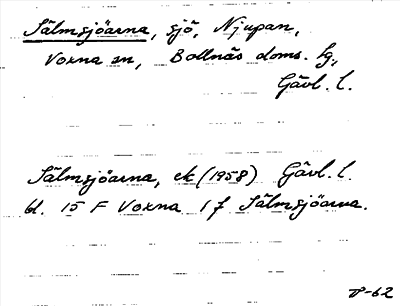 Sälmsjöarna, sjö, Njupan,
Voxna sn, Bollnäs doms. hg.,
Gävl. l.
Sälmsjöarna, ek (1958) Gävl. l.
bl. 15 F Voxna 1 f Sälmsjöarna.
-62